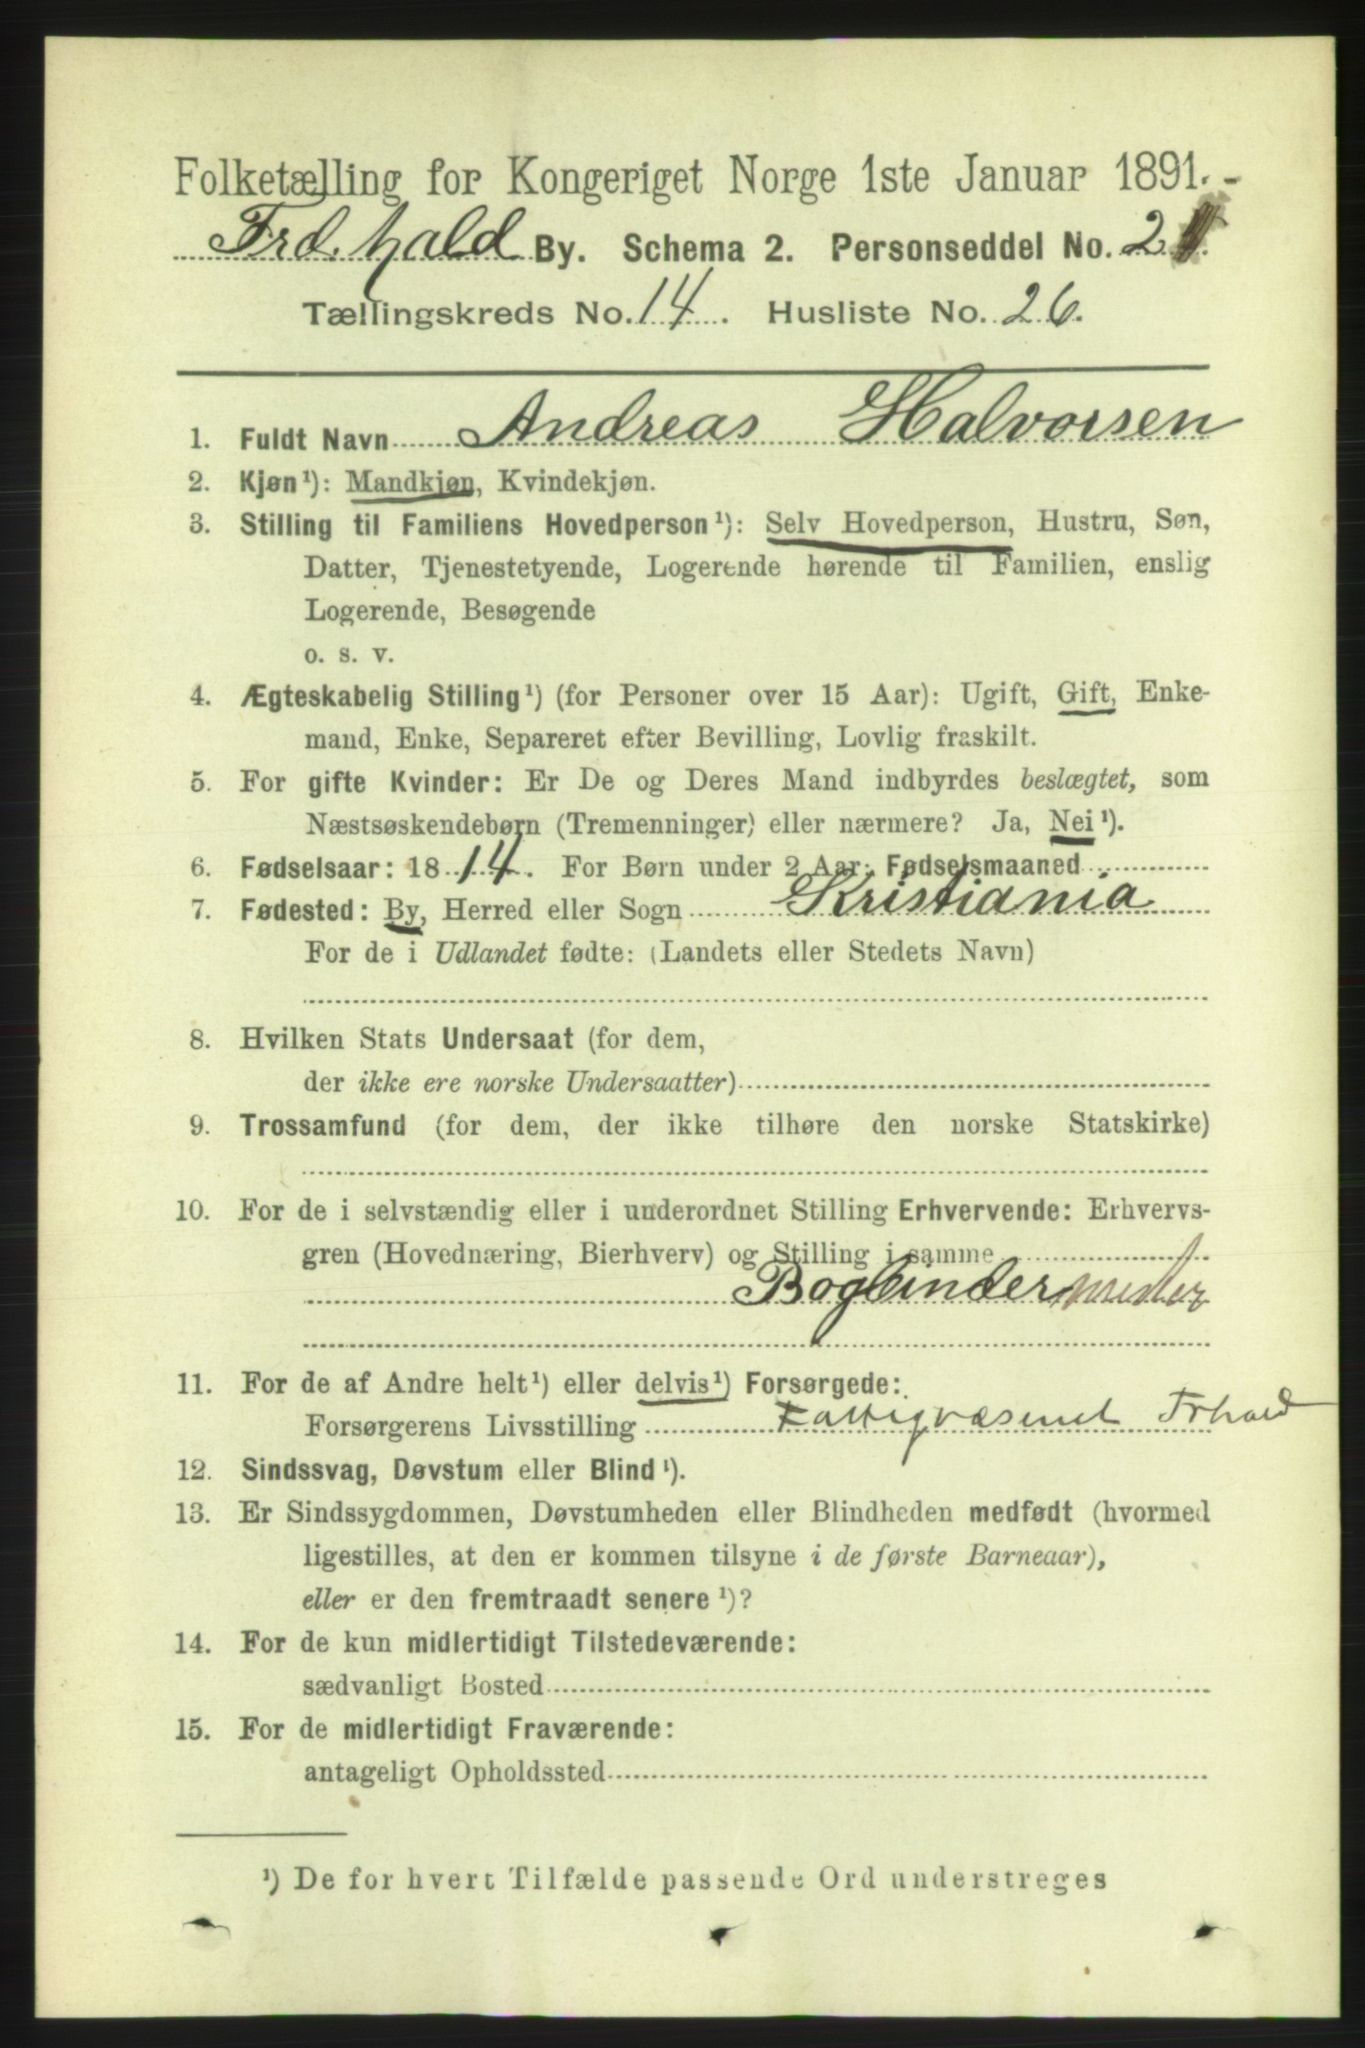 Folketælling for Kongeriget Norge 1ste Januar 1891.
Frd.hald By. Schema 2. Personseddel No. 2
Tællingskreds No. 14. Husliste No. 26.
1. Fuldt Navn Andreas Halvorsen
2. Kjøn¹): Mandkjøn, Kvindekjøn.
3. Stilling til Familiens Hovedperson¹): Selv Hovedperson, Hustru, Søn,
Datter, Tjenestetyende, Logerende hørende til Familien, enslig
Logerende, Besøgende
o. s. v.
4. Ægteskabelig Stilling¹) (for Personer over 15 Aar): Ugift, Gift, Enke-
mand, Enke, Separeret efter Bevilling, Lovlig fraskilt.
5. For gifte Kvinder: Er De og Deres Mand indbyrdes beslægtet, som
Næstsøskendebørn (Tremenninger) eller nærmere? Ja, Nei¹).
6. Fødselsaar: 1814. For Børn under 2 Aar: Fødselsmaaned
7. Fødested: By, Herred eller Sogn Kristiania
For de i Udlandet fødte: (Landets eller Stedets Navn)
8. Hvilken Stats Undersaat (for dem,
der ikke ere norske Undersaatter)
9. Trossamfund (for dem, der ikke tilhøre den norske Statskirke)
10. For de i selvstændig eller i underordnet Stilling Erhvervende: Erhvervs-
gren (Hovednæring, Bierhverv) og Stilling i samme
Bogbindermester
11. For de af Andre helt¹) eller delvis¹) Forsørgede:
Forsørgerens Livsstilling Fattigvæsenet Frhald
12. Sindssvag, Døvstum eller Blind¹).
13. Er Sindssygdommen, Døvstumheden eller Blindheden medfødt (hvormed
ligestilles, at den er kommen tilsyne i de første Barneaar),
eller er den fremtraadt senere¹)?
14. For de kun midlertidigt Tilstedeværende:
sædvanligt Bosted
15. For de midlertidigt Fraværende:
antageligt Opholdssted
¹) De for hvert Tilfælde passende Ord understreges